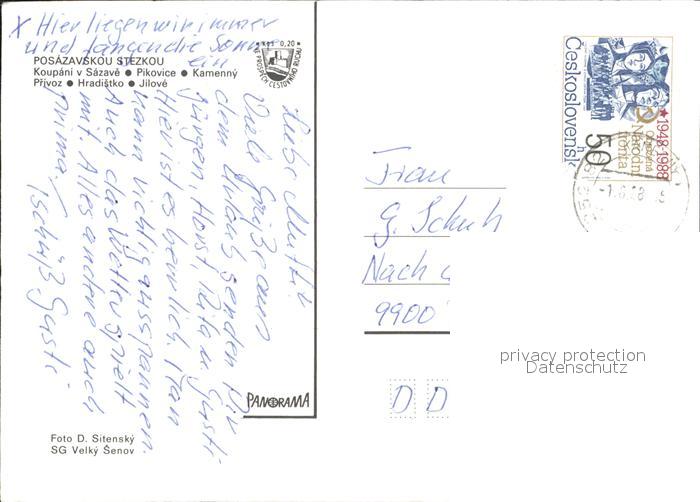 X Hier liegen wir immer
und fangen die Sonne
ein
Kčs 0,20
VE PROSPĚCH CESTOVNÍHO RUCHU
POSÁZAVSKOU STEZKOU
Koupání v Sázavě ● Pikovice ● Kamenný
Přívoz ● Hradištko ● Jílové
Liebe Mutti
Viele Grüße aus
dem Urlaub senden Dir
Jürgen, Horst, Rita u. Gusti
Hier ist es herrlich. Man
kann richtig ausspannen.
Auch das Wetter spielt
mit. Alles andere auch
prima. Tschüß Gusti
PANORAMA
Foto D. Sitenský
SG Velký Šenov
Československ
50 h
1948-1988
Obrozená
Národní
fronta
Frau
G. Schuh
Nach
9900
D D
privacy protection
Datenschutz